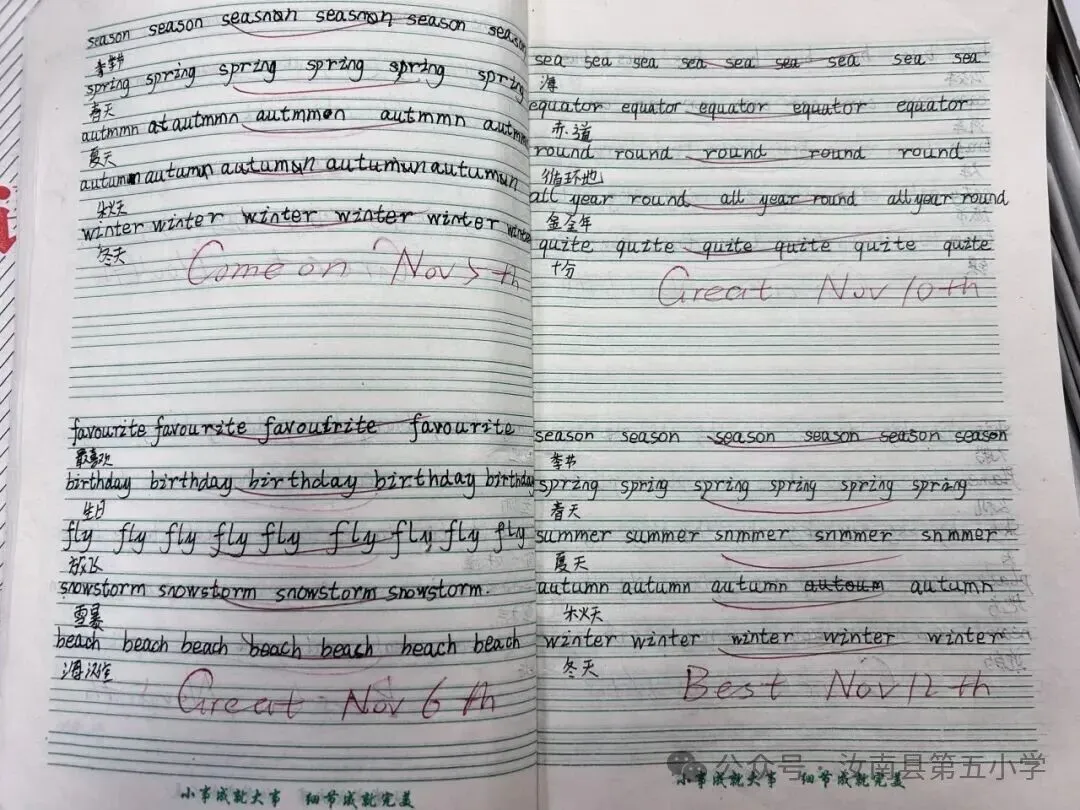 season season seasnon seasnon season season
春季节
spring spring spring spring spring spring
春天
autmmn at autmmn autmmon autmmn autmmn
夏天
autumn autumn autumun autumun autumun
秋天
winter winter winter winter winter winter
冬天
Come on Nov 5th
favourite favourite favoufrite favourite
最喜欢
birthday birthday birthday birthday birthday
生日
fly fly fly fly fly fly fly fly fly
放飞
snowstorm snowstorm snowstorm snowstorm.
雪暴
beach beach beach beach beach beach beach
Great Nov 6th
小事成就大事 细节成就完美
sea sea sea sea sea sea sea sea sea
海
equator equator equator equator equator
赤道
round round round round round
循环地
all year round all year round all year round
金全年
quite quite quite quite quite quite
十分
Great Nov 10th
season season season season season season
季节
spring sprig spring spring spring spring
春天
summer summer snmmer snmmer snmmer
夏天
autumn autumn autumn autoum autumn
秋天
winter winter winter winter winter
冬天
Best Nov 12th
小事成就大事 细节成就完美
公众号·汝南县第五小学